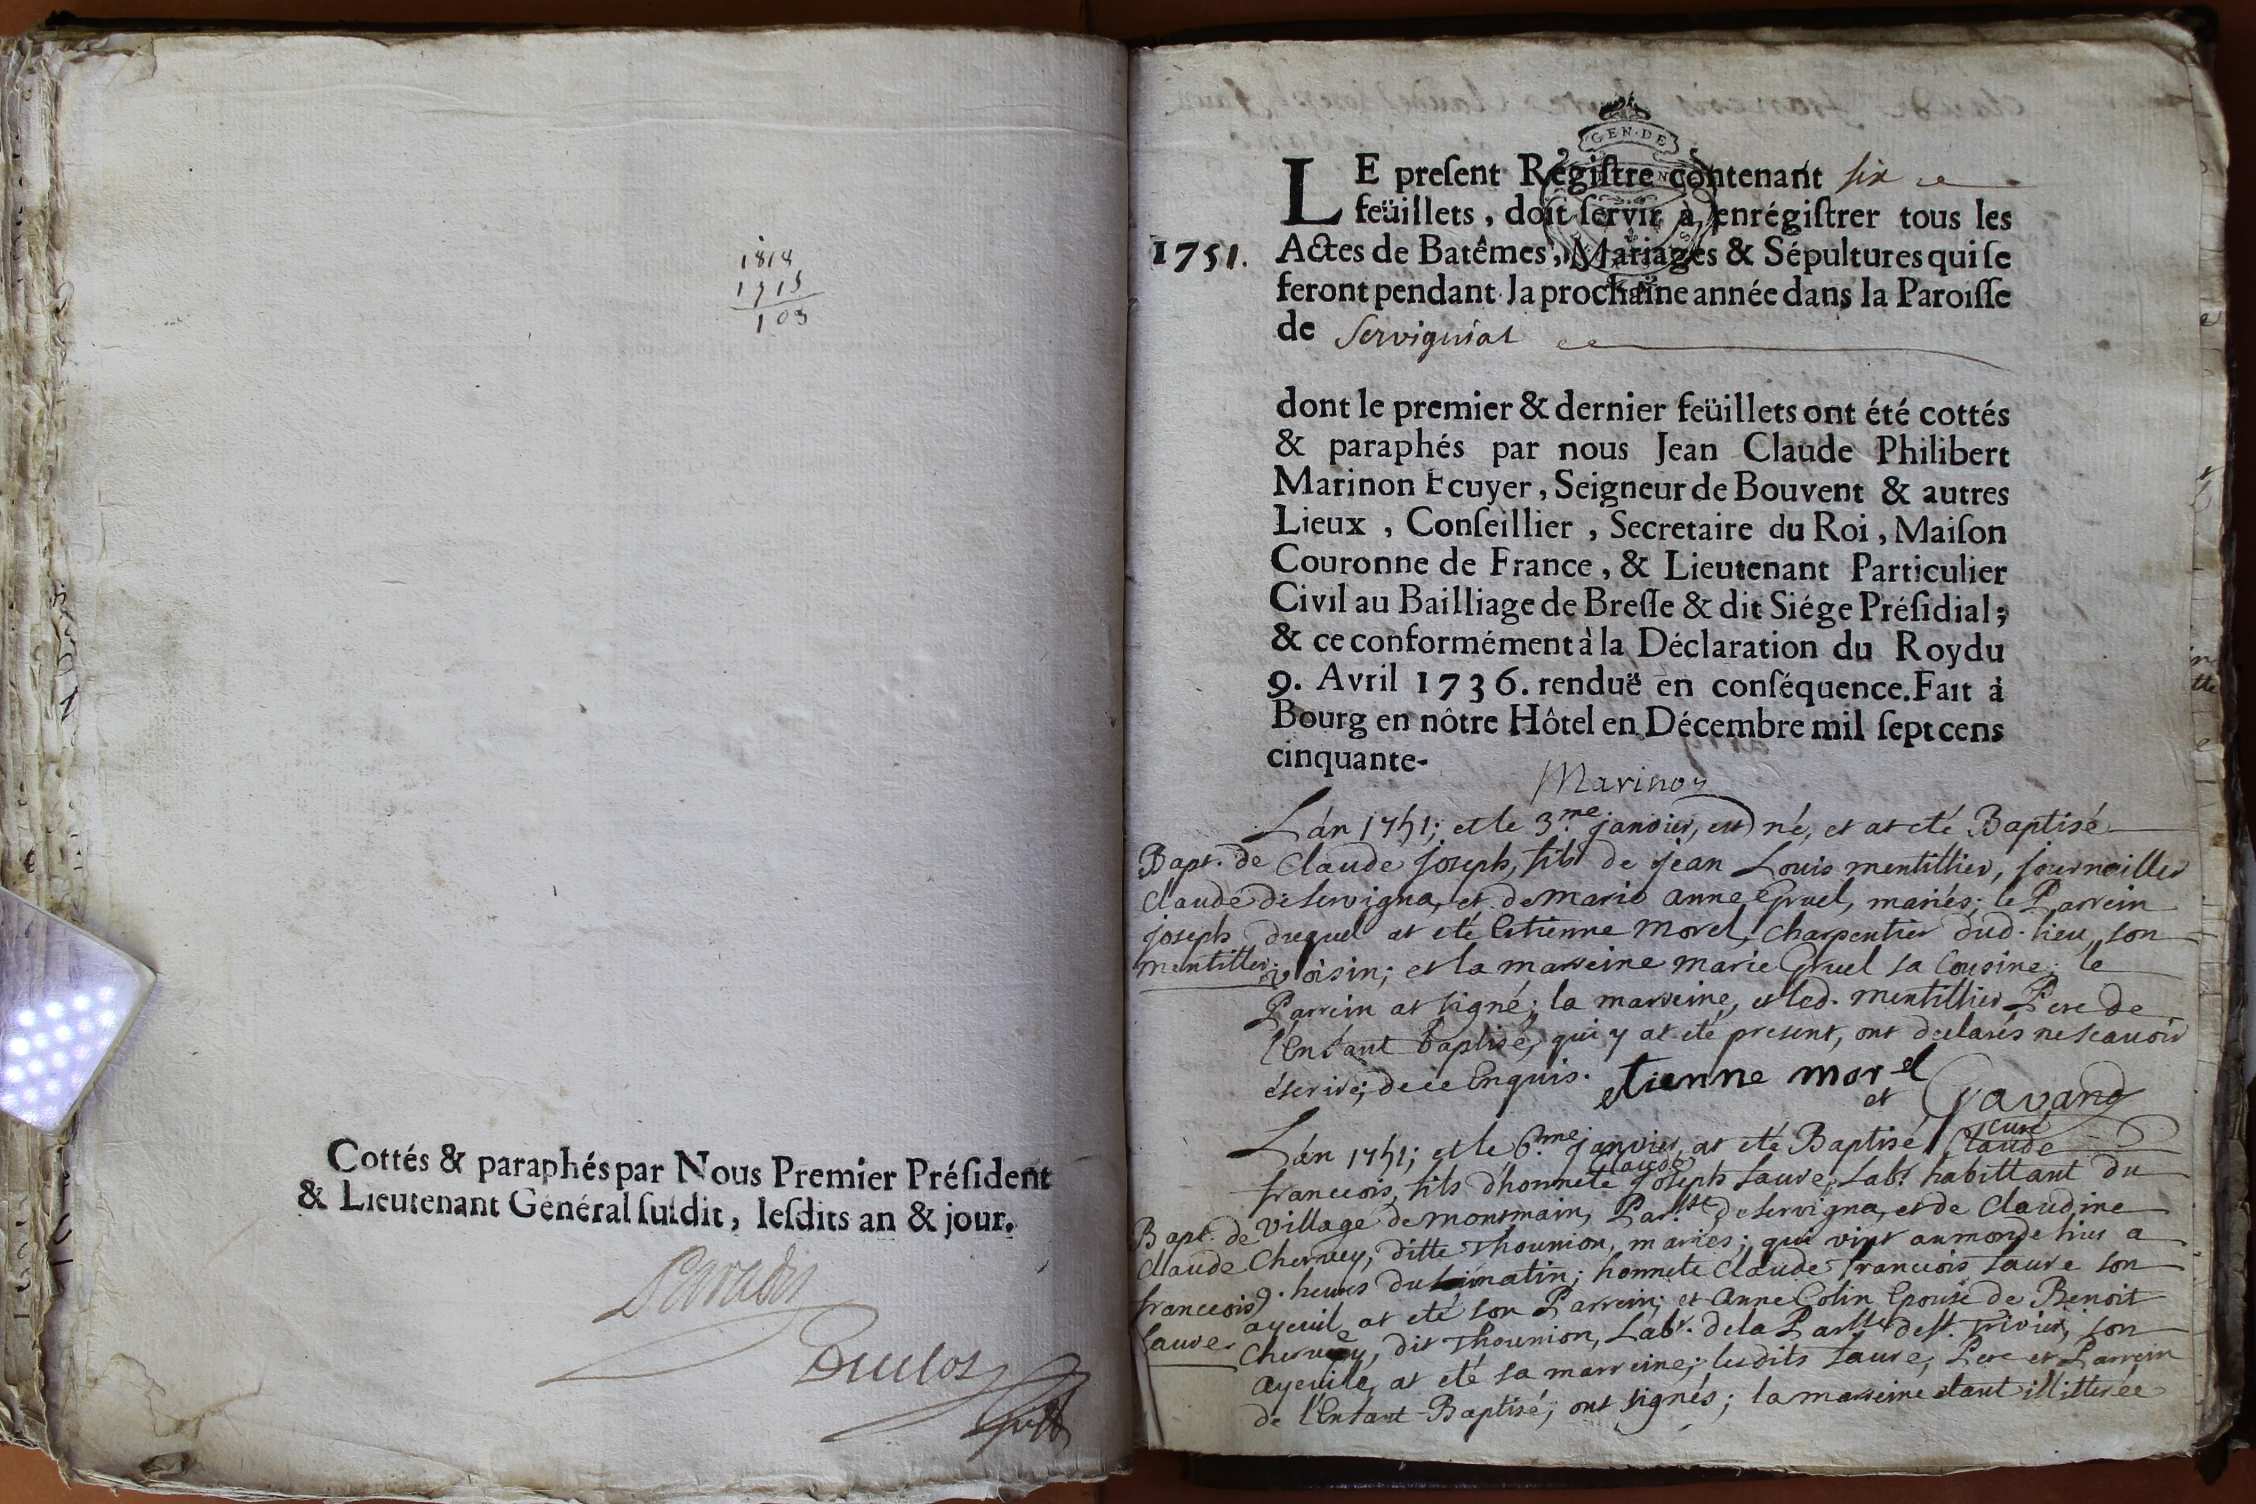 1818
1715
103
Cottés & paraphés par Nous Premier Président
& Lieutenant Général susdit, lesdits an & jour.
Duclos
GEN·DE
LE present Régistre contenant six
feüillets, doit servir à enrégistrer tous les
1751. Actes de Batêmes, Mariages & Sépultures qui se
feront pendant la prochaine année dans la Paroisse
de Servignat
dont le premier & dernier feüillets ont été cottés
& paraphés par nous Jean Claude Philibert
Marinon Ecuyer, Seigneur de Bouvent & autres
Lieux, Conseillier, Secretaire du Roi, Maison
Couronne de France, & Lieutenant Particulier
Civil au Bailliage de Bresse & dit Siége Présidial;
& ce conformément à la Déclaration du Roy du
9. Avril 1736. renduë en conséquence. Fait à
Bourg en nôtre Hôtel en Décembre mil sept cens
cinquante.
Marinon
L'an 1751; et le 3.me janvier, est né, et at eté Baptisé
Bapt. de Claude joseph, fils de jean Louis mentillier, journaillier
Claude de servigna, et de marie anne Gruel, mariés; le Parrein
joseph duquel at eté Etienne Morel, charpentier dud. lieu, son
mentillier. voisin; et la marreine marie Gruel sa Cousine; le
Parrein at signé; la marreine, et led. mentillier Pere de
l'Enfant baptisé, qui y at eté present, ont declarés ne scavoir
éscrire; de ce Enquis. etienne morel
et Gavand
curé
L'an 1751; et le 6.me janvier, at eté Baptisé Claude
franceois, fils d'honnete Claude joseph sauve, Labr. habittant du
village de monsmain, Par.sse de servigna, et de Claudine
Bapt. de Chervey, ditte Thounion, mariés; qui vint au monde hier a
Claude 9. heures du matin; honnete Claude franceois sauve son
franceois ayeuil at eté son Parrein; et Anne Colin Epouse de Benoit
sauve. Chervey, dit Thounion, Labr. de la Par.sse de st. Trivier, son
Ayeuile, at eté sa marreine; lesdits sauve, Pere et Parrein
de l'Enfant Baptisé, ont signés; la marreine étant illitterée